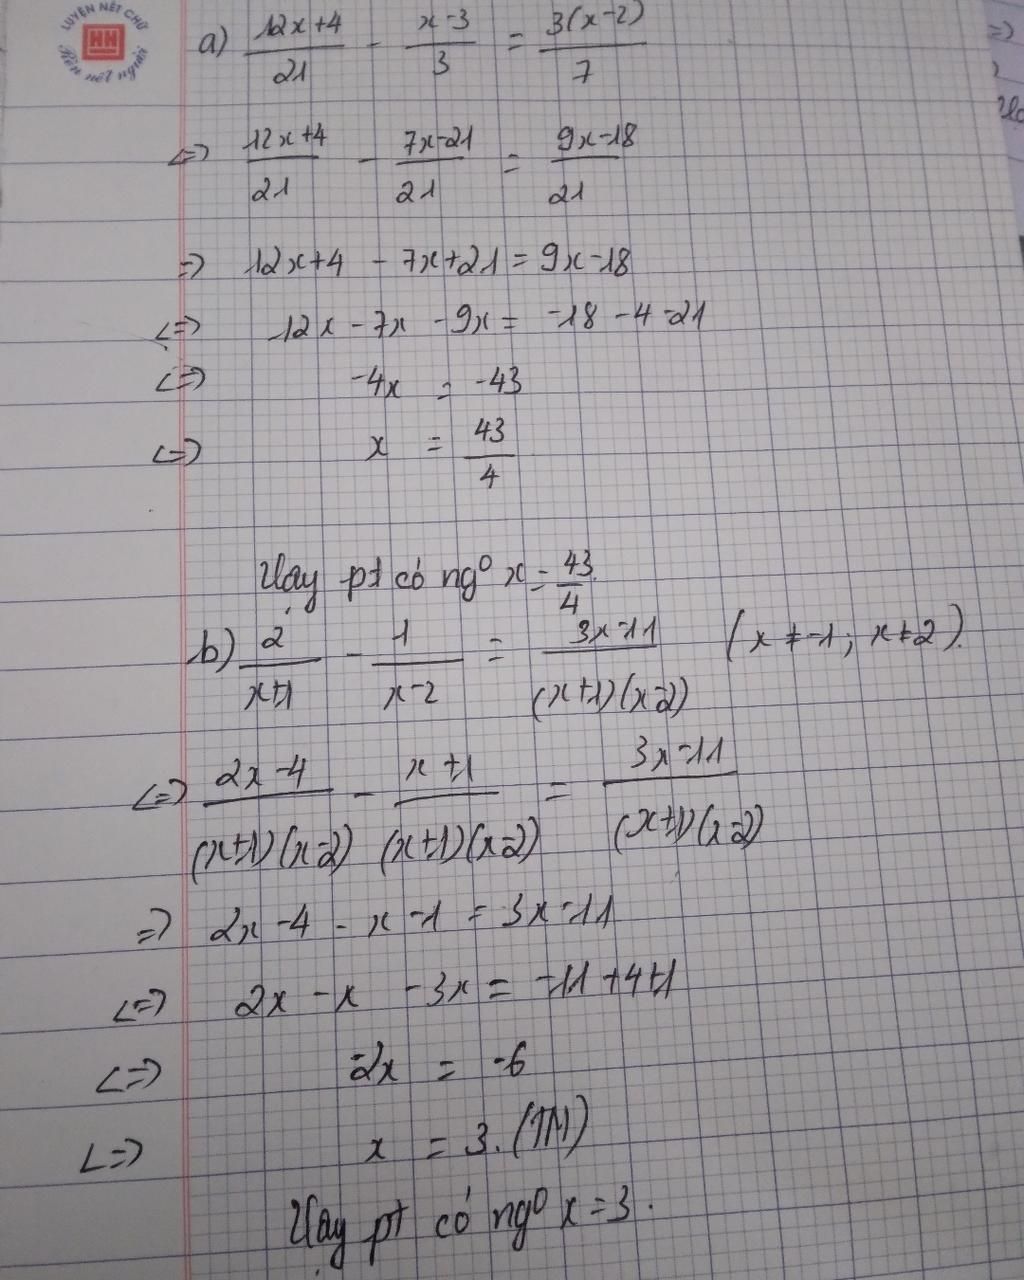 LUYỆN NÉT CHỮ
HH
Rèn nết người
a) (12x+4)/21 - (x-3)/3 = 3(x-2)/7
<=> (12x+4)/21 - (7x-21)/21 = (9x-18)/21
=> 12x+4 - 7x+21 = 9x-18
<=> 12x - 7x - 9x = -18 - 4 - 21
<=> -4x = -43
<=> x = 43/4
Vậy pt có ngº x = 43/4
b) 2/(x+1) - 1/(x-2) = (3x-11)/((x+1)(x-2)) (x ≠ -1; x ≠ 2).
<=> (2x-4)/((x+1)(x-2)) - (x+1)/((x+1)(x-2)) = (3x-11)/((x+1)(x-2))
=> 2x-4 - x-1 = 3x-11
<=> 2x - x - 3x = -11 + 4+1
<=> -2x = -6
<=> x = 3. (TM)
Vậy pt có ngº x = 3.